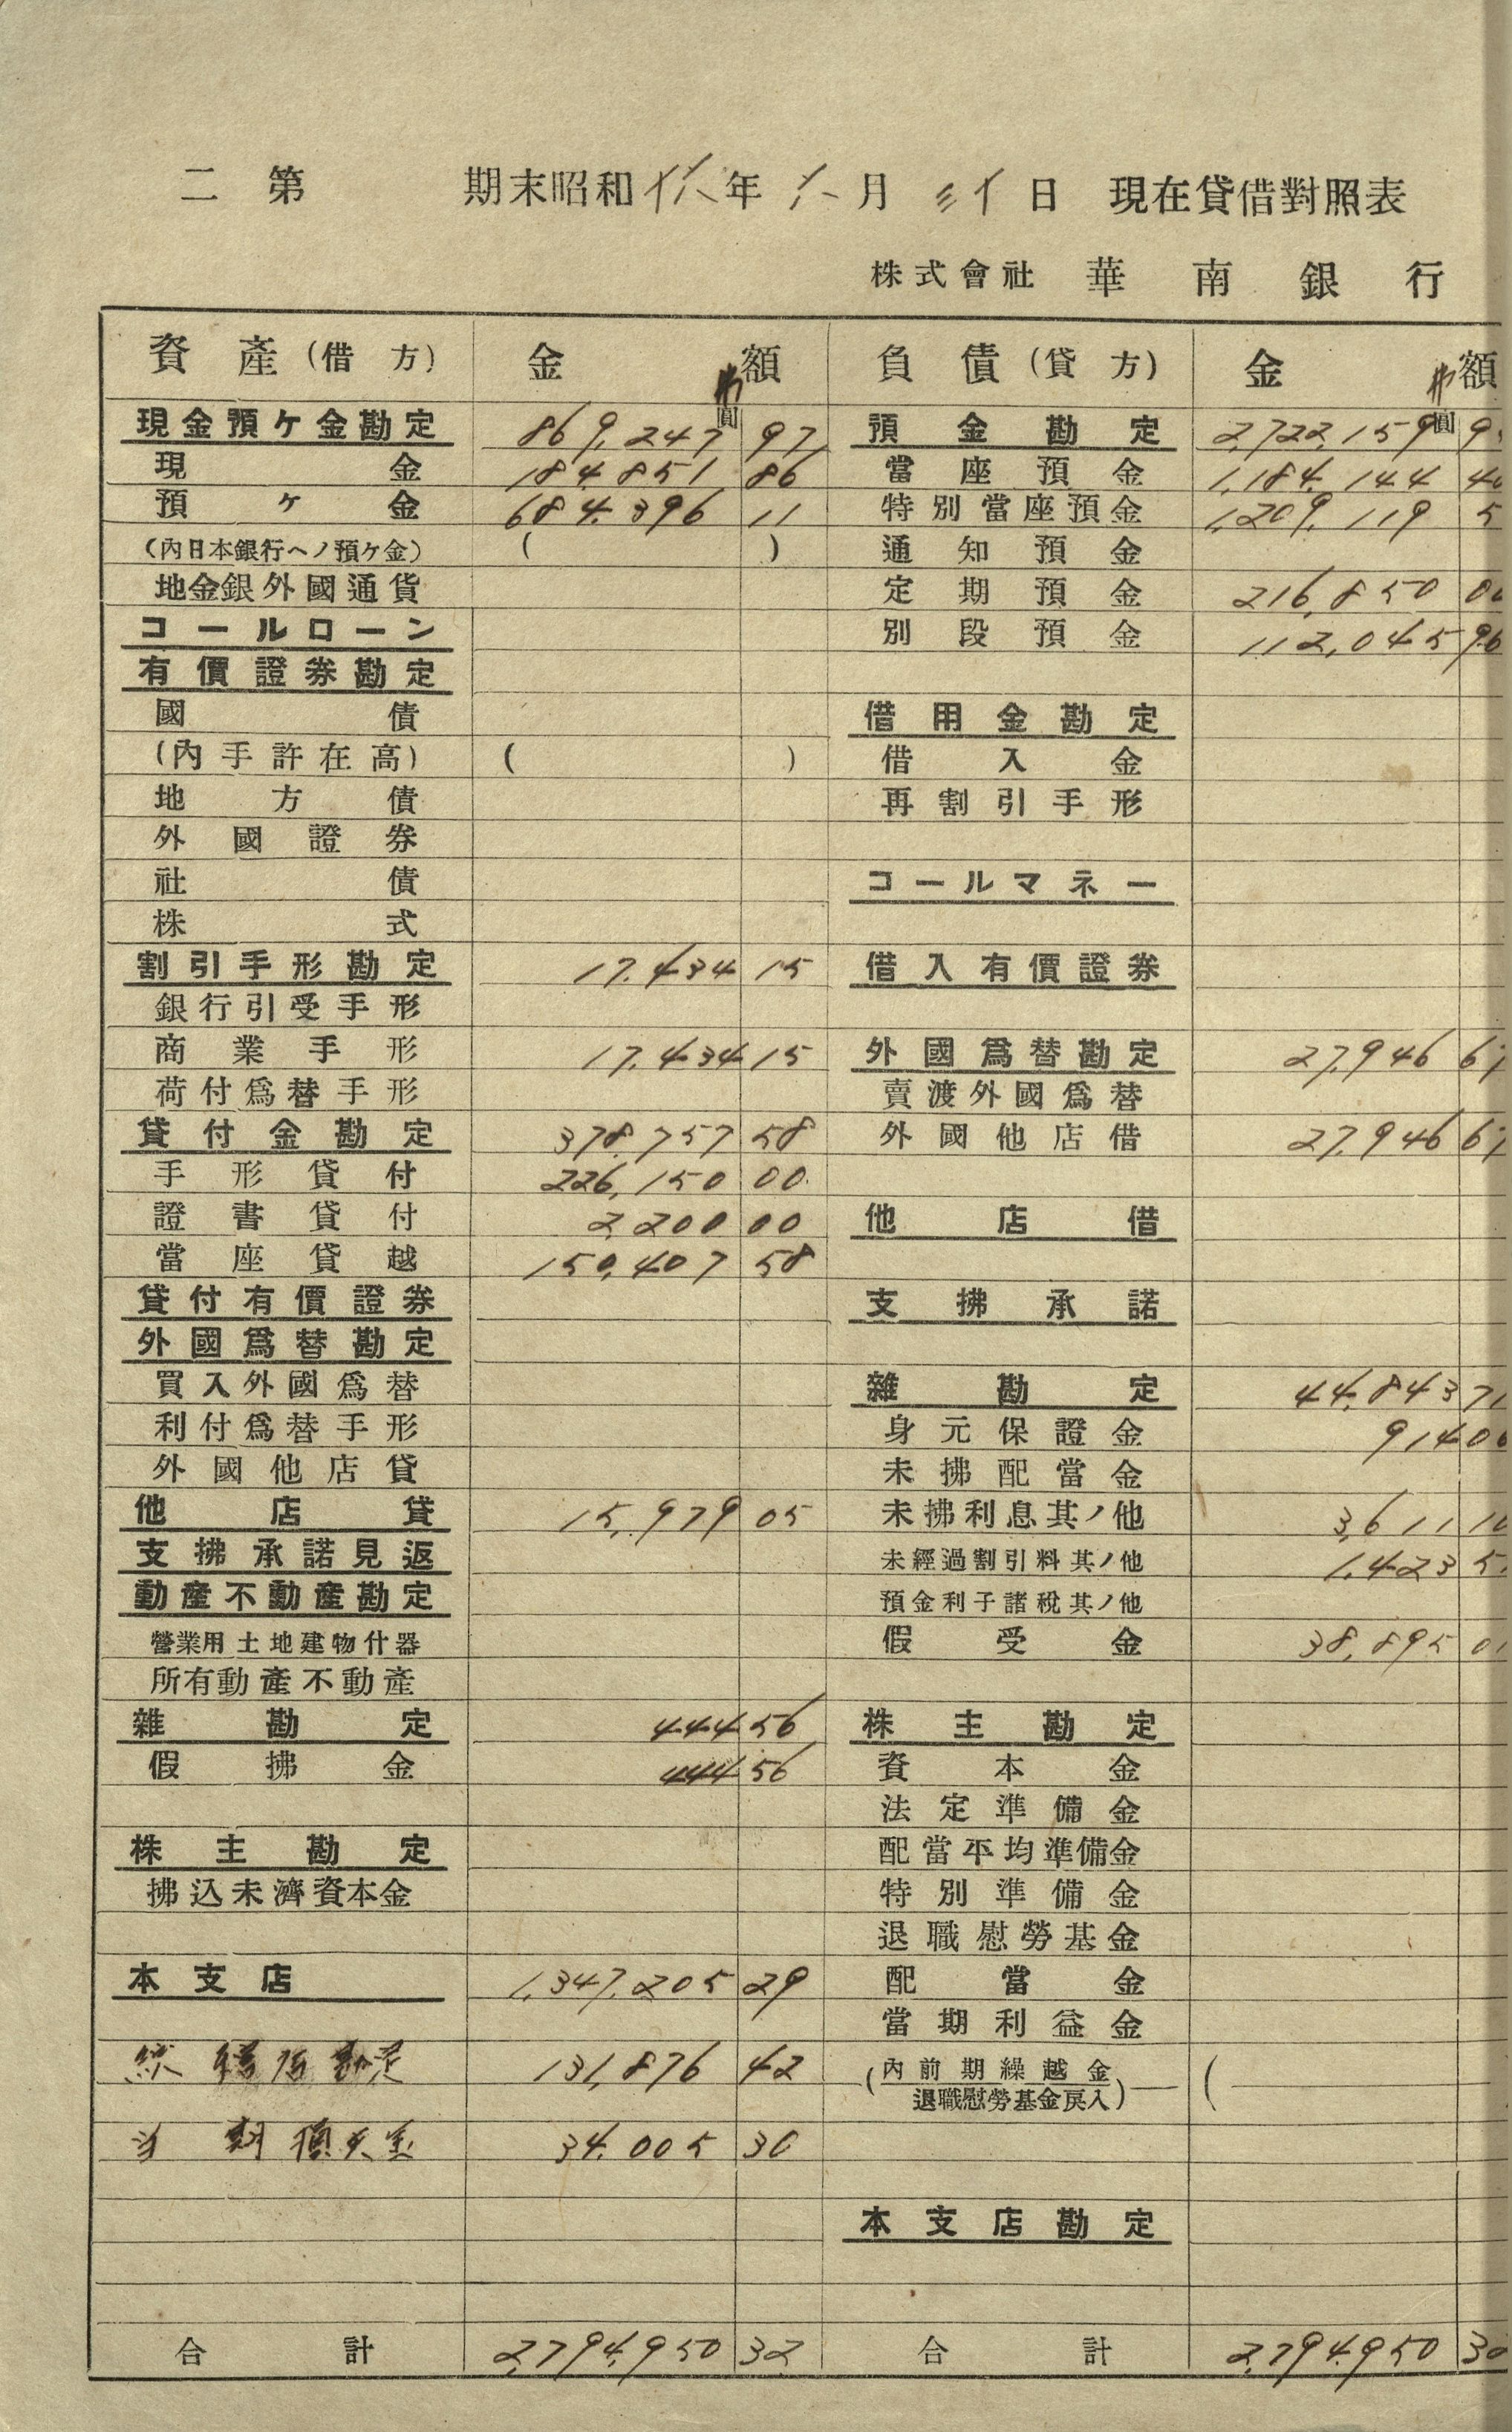 二 第 期末昭和 年 六月 三十日 現在貸借對照表
株式會社 華南銀行
資產(借方) 金額 負債(貸方) 金額
圓 圓
現金預ケ金勘定 869,247 97 預金勘定 2,722,159
現金 184,851 86 當座預金 1,184,144
預ケ金 684,396 11 特別當座預金 1,209,119
(內日本銀行ヘノ預ケ金) ( ) 通知預金
地金銀外國通貨 定期預金 216,850
コールローン 別段預金 112,045 96
有價證券勘定
國債 借用金勘定
(內手許在高) ( ) 借入金
地方債 再割引手形
外國證券
社債 コールマネー
株式
割引手形勘定 17,434 15 借入有價證券
銀行引受手形
商業手形 17,434 15 外國爲替勘定 27,946
荷付爲替手形 賣渡外國爲替
貸付金勘定 378,757 58 外國他店借 27,946
手形貸付 226,150 00
證書貸付 2,200 00 他店借
當座貸越 150,407 58
貸付有價證券 支拂承諾
外國爲替勘定
買入外國爲替 雜勘定 44,843
利付爲替手形 身元保證金 914
外國他店貸 未拂配當金
他店貸 15,979 05 未拂利息其ノ他 3,611
支拂承諾見返 未經過割引料其ノ他 1,423
動產不動產勘定 預金利子諸稅其ノ他
營業用土地建物什器 假受金 38,895
所有動產不動產
雜勘定 444 56 株主勘定
假拂金 444 56 資本金
法定準備金
株主勘定 配當平均準備金
拂込未濟資本金 特別準備金
退職慰勞基金
本支店 1,347,205 29 配當金
當期利益金
店勘定 131,876 42 (內前期繰越金
退職慰勞基金戾入) (
當期損失金 34,005 30
本支店勘定
合計 2,794,950 32 合計 2,794,950